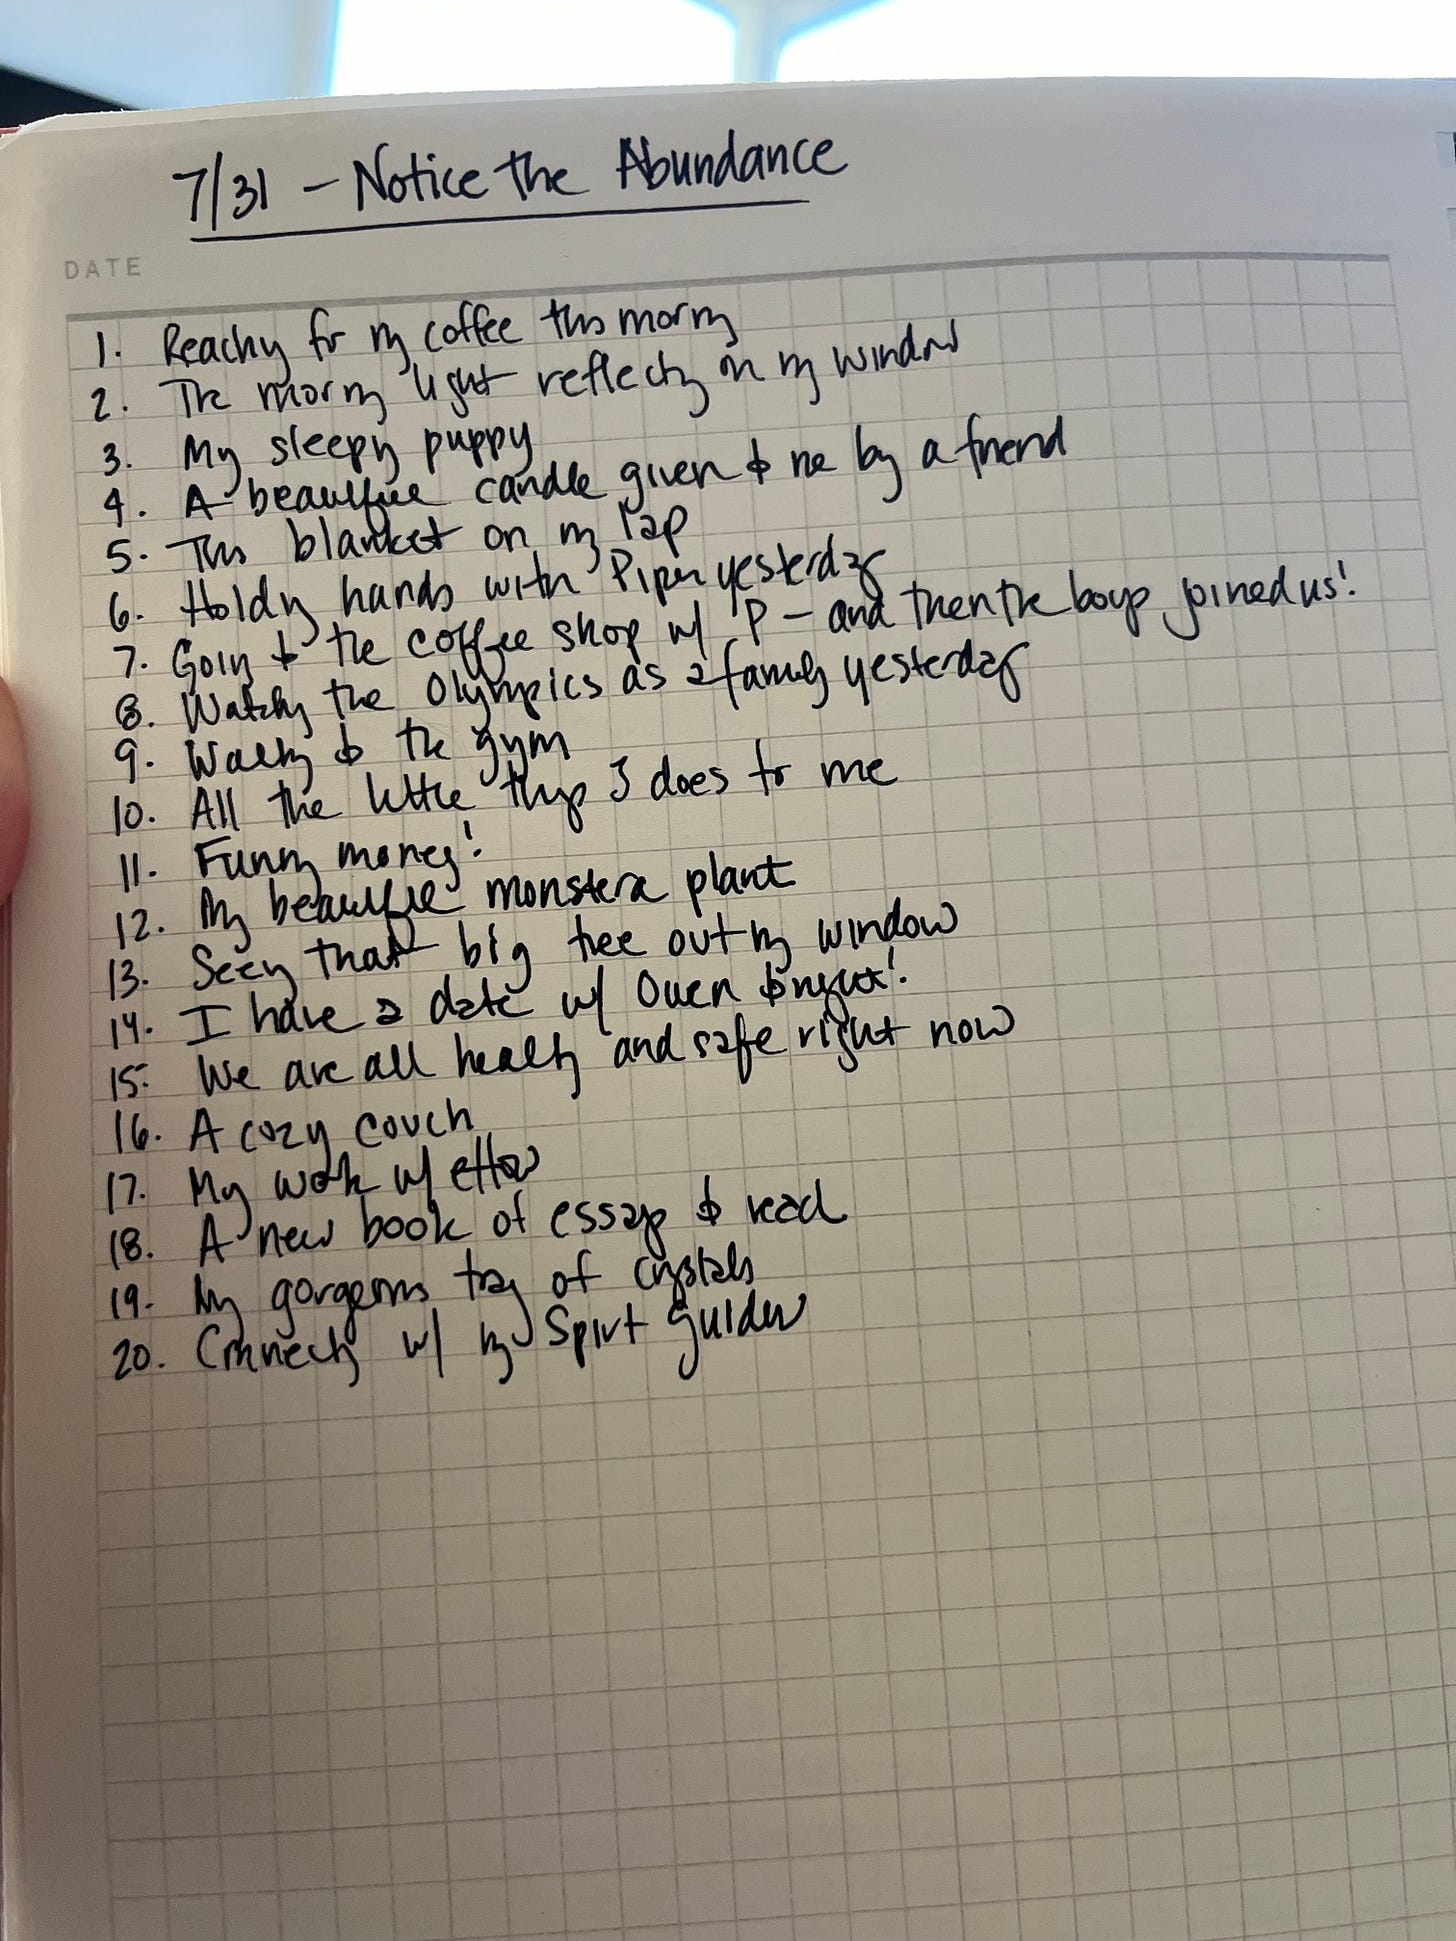 7/31 - Notice the Abundance
DATE
1. Reaching for my coffee this morning
2. The morning light reflecting on my window
3. My sleepy puppy
4. A beautiful candle given to me by a friend
5. This blanket on my lap
6. Holding hands with Piper yesterday
7. Going to the coffee shop w/ P - and then the boys joined us!
8. Watching the Olympics as a family yesterday
9. Walking to the gym
10. All the little things J does for me
11. Funny money!
12. My beautiful monstera plant
13. Seeing that big tree out my window
14. I have a date w/ Owen tonight!
15. We are all healthy and safe right now
16. A cozy couch
17. My work w/
18. A new book of essays to read
19. My gorgeous tray of crystals
20. Connecting w/ my Spirit Guides